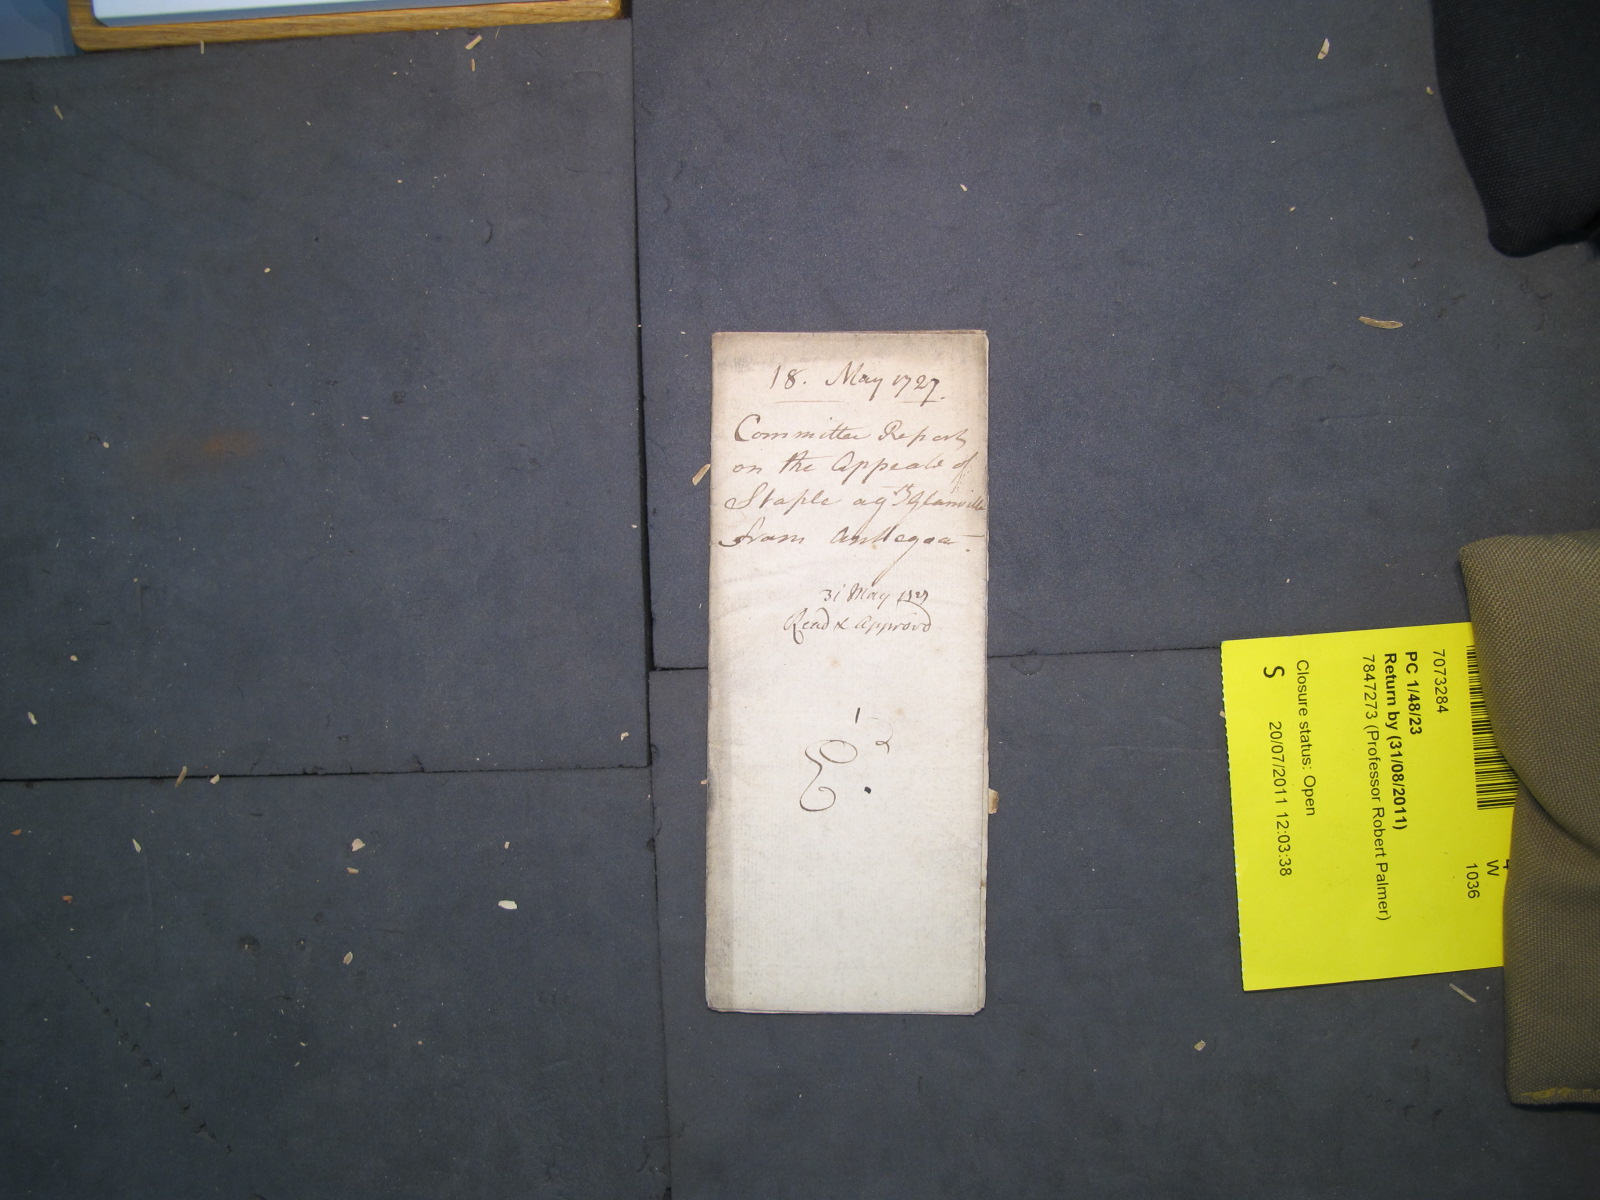 18. May 1727.
Committee Report
on the Appeale of
Staple agst Glanville
from Antegoa.
31 May 1727
Read & Approvd
E
7073284
PC 1/48/23
Return by (31/08/2011)
7847273 (Professor Robert Palmer)
Closure status: Open
S 20/07/2011 12:03:38
4
W
1036